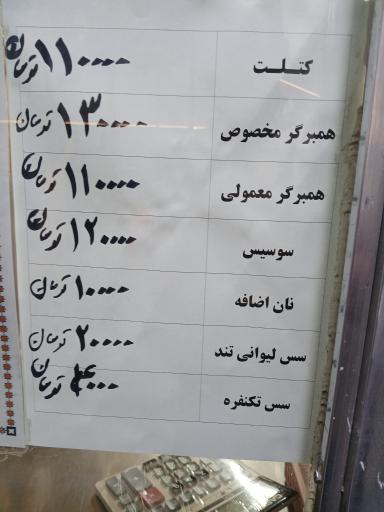 کتلت ۱۱۰۰۰۰ تومان
همبرگر مخصوص ۱۳۰۰۰۰ تومان
همبرگر معمولی ۱۱۰۰۰۰ تومان
سوسیس ۱۲۰۰۰۰ تومان
نان اضافه ۱۰۰۰۰ تومان
سس لیوانی تند ۲۰۰۰۰ تومان
سس تکنفره ۴۰۰۰ تومان